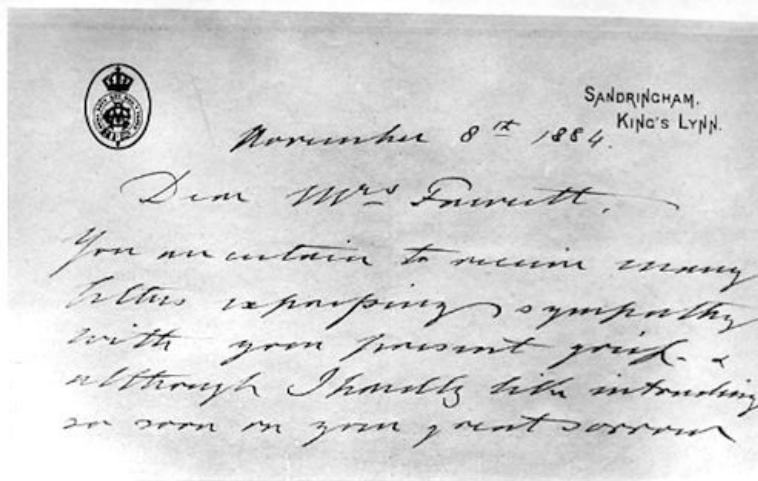 SANDRINGHAM.
KING'S LYNN.
November 8th 1884.
Dear Mrs Fawcett.
You are certain to receive many
letters expressing sympathy
with your present grief - &
although I hardly like intruding
so soon on your great sorrow